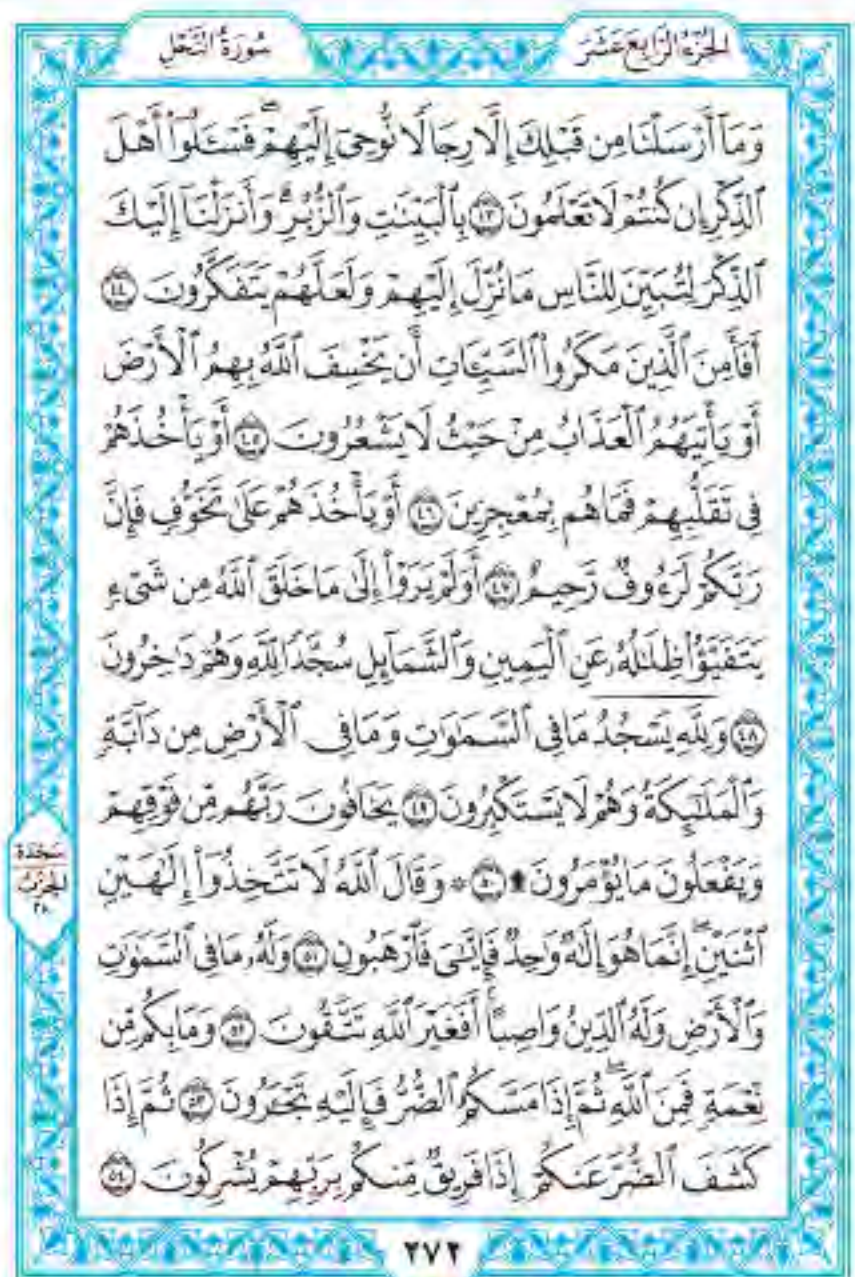 الجزء الرابع عشر
سورة النحل
وَمَآ أَرْسَلْنَا مِن قَبْلِكَ إِلَّا رِجَالًا نُّوحِىٓ إِلَيْهِمْ ۖ فَسْـَٔلُوٓا۟ أَهْلَ
ٱلذِّكْرِ إِن كُنتُمْ لَا تَعْلَمُونَ ٤٣ بِٱلْبَيِّنَـٰتِ وَٱلزُّبُرِ ۗ وَأَنزَلْنَآ إِلَيْكَ
ٱلذِّكْرَ لِتُبَيِّنَ لِلنَّاسِ مَا نُزِّلَ إِلَيْهِمْ وَلَعَلَّهُمْ يَتَفَكَّرُونَ ٤٤
أَفَأَمِنَ ٱلَّذِينَ مَكَرُوا۟ ٱلسَّيِّـَٔاتِ أَن يَخْسِفَ ٱللَّهُ بِهِمُ ٱلْأَرْضَ
أَوْ يَأْتِيَهُمُ ٱلْعَذَابُ مِنْ حَيْثُ لَا يَشْعُرُونَ ٤٥ أَوْ يَأْخُذَهُمْ
فِى تَقَلُّبِهِمْ فَمَا هُم بِمُعْجِزِينَ ٤٦ أَوْ يَأْخُذَهُمْ عَلَىٰ تَخَوُّفٍ فَإِنَّ
رَبَّكُمْ لَرَءُوفٌ رَّحِيمٌ ٤٧ أَوَلَمْ يَرَوْا۟ إِلَىٰ مَا خَلَقَ ٱللَّهُ مِن شَىْءٍ
يَتَفَيَّؤُا۟ ظِلَـٰلُهُۥ عَنِ ٱلْيَمِينِ وَٱلشَّمَآئِلِ سُجَّدًا لِّلَّهِ وَهُمْ دَٰخِرُونَ
٤٨ وَلِلَّهِ يَسْجُدُ مَا فِى ٱلسَّمَـٰوَٰتِ وَمَا فِى ٱلْأَرْضِ مِن دَآبَّةٍ
وَٱلْمَلَـٰٓئِكَةُ وَهُمْ لَا يَسْتَكْبِرُونَ ٤٩ يَخَافُونَ رَبَّهُم مِّن فَوْقِهِمْ
وَيَفْعَلُونَ مَا يُؤْمَرُونَ ۩ ٥٠ ۞ وَقَالَ ٱللَّهُ لَا تَتَّخِذُوٓا۟ إِلَـٰهَيْنِ
ٱثْنَيْنِ ۖ إِنَّمَا هُوَ إِلَـٰهٌ وَٰحِدٌ فَإِيَّـٰىَ فَٱرْهَبُونِ ٥١ وَلَهُۥ مَا فِى ٱلسَّمَـٰوَٰتِ
وَٱلْأَرْضِ وَلَهُ ٱلدِّينُ وَاصِبًا ۚ أَفَغَيْرَ ٱللَّهِ تَتَّقُونَ ٥٢ وَمَا بِكُم مِّن
نِّعْمَةٍ فَمِنَ ٱللَّهِ ۖ ثُمَّ إِذَا مَسَّكُمُ ٱلضُّرُّ فَإِلَيْهِ تَجْـَٔرُونَ ٥٣ ثُمَّ إِذَا
كَشَفَ ٱلضُّرَّ عَنكُمْ إِذَا فَرِيقٌ مِّنكُم بِرَبِّهِمْ يُشْرِكُونَ ٥٤
سجدة
الحزب
٢٨
٢٧٢